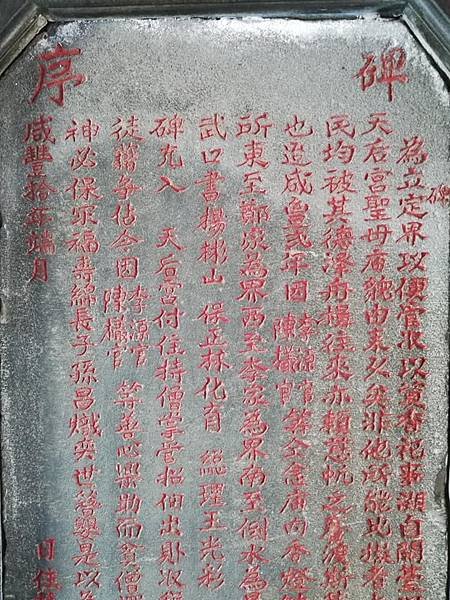 碑序
為立碑定界以便管收以資香祀事溯自開臺
天后宮聖母廟貌由來久矣非他所能比擬者
民均被其德澤舟楫往來亦賴慈帆之廣渡斯
也迨咸豐貳年因李漳官陳欉官等仝念廟內香燈
所東至鄭家為界西至李家為界南至倒水為
武口書楊彬山 保正林化育 總理王光彩
碑充入 天后宮付住持僧掌管招佃出贌收
徒等佔今因李漳官陳欉官等善心樂助而貧僧
神必保眾福壽綿長子孫昌熾奕世簪纓是以
咸豐拾年端月 日住